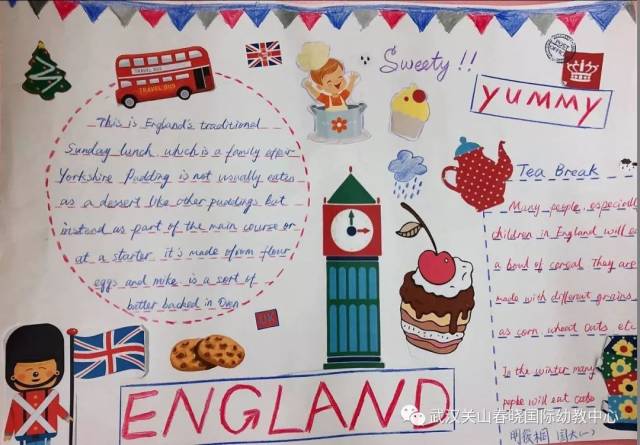 TRAVEL BUS
TRAVEL BUS
Sweety !!
POST OFFICE
YUMMY
This is England's traditional
Sunday lunch which is a family affair
Yorkshire Pudding is not usually eaten
as a dessert like other puddings but
instead as part of the main course or
at a starter. it's made from flour
eggs and milke is a sort of
batter backed in Oven
UK
Tea Break
Many people, especially
children in England will ea
a bowl of cereal. They are
made with different grains
as corn, wheat oats etc
In the winter many
people will eat
ENGLAND
武汉关山春晓国际幼教中心